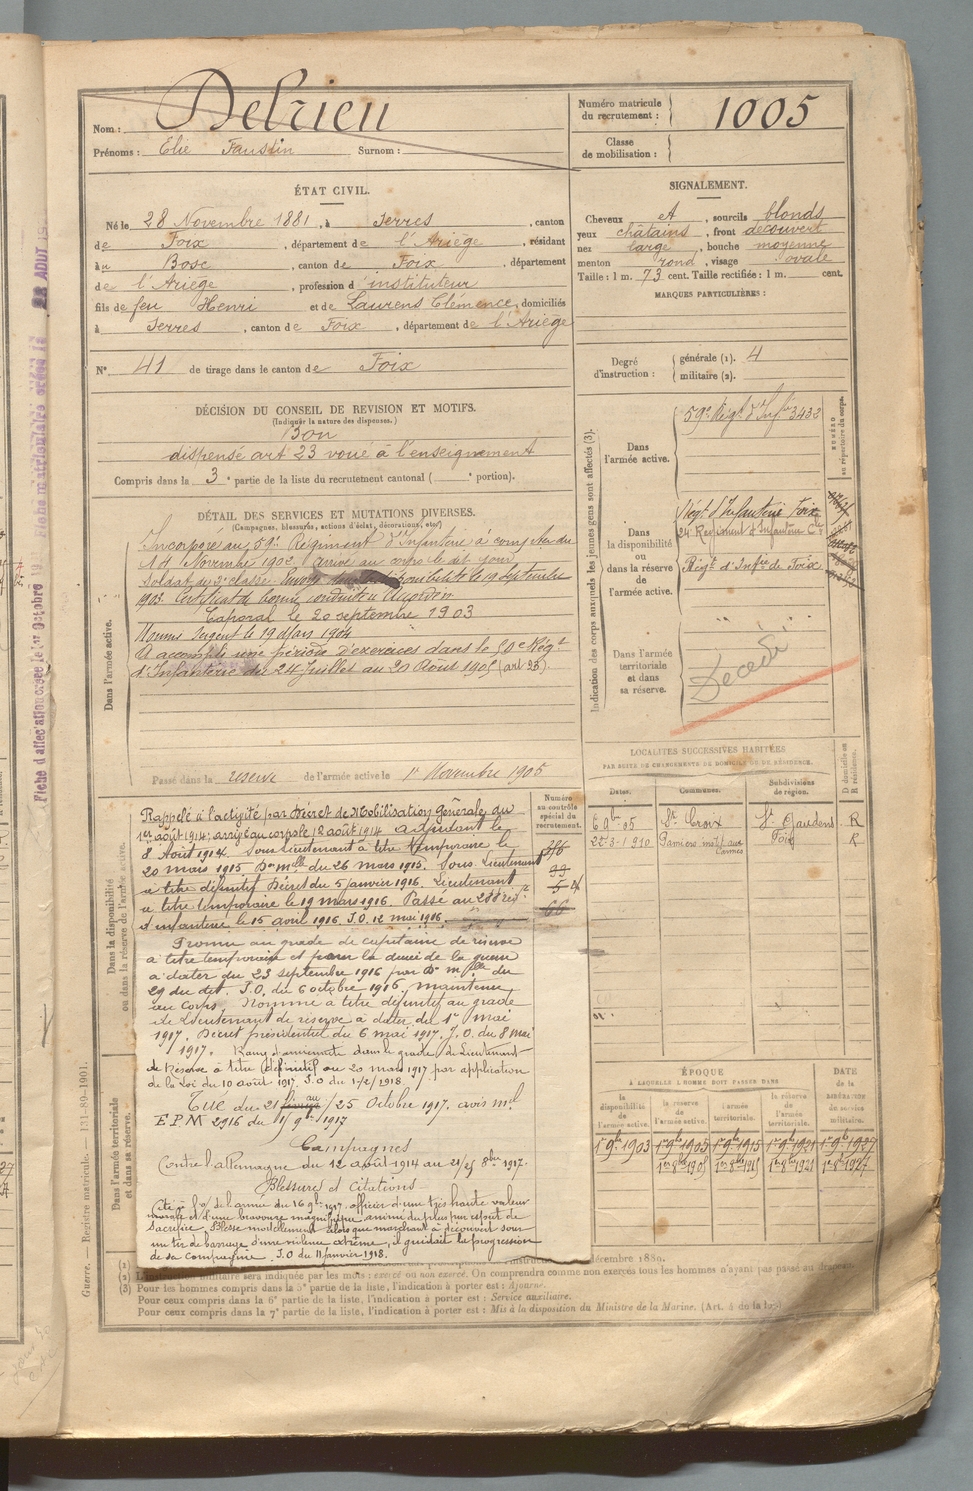 Nom : Delrieu
Prénoms : Elie Faustin Surnom :
Numéro matricule du recrutement : 1005
Classe de mobilisation :
ÉTAT CIVIL.
Né le 28 Novembre 1881, à Serres, canton
de Foix, département de l'Ariège, résidant
au Bosc, canton de Foix, département
de l'Ariège, profession d'instituteur
fils de feu Henri et de Laurens Clémence, domiciliés
à Serres, canton de Foix, département de l'Ariège
N° 41 de tirage dans le canton de Foix
SIGNALEMENT.
Cheveux et, sourcils blonds
yeux châtains, front découvert
nez large, bouche moyenne
menton rond, visage ovale
Taille : 1 m. 73 cent. Taille rectifiée : 1 m. cent.
MARQUES PARTICULIÈRES :
Degré d'instruction : générale (1). 4
militaire (2).
DÉCISION DU CONSEIL DE REVISION ET MOTIFS.
(Indiquer la nature des dispenses.)
Bon
dispensé art 23 voué à l'enseignement
Compris dans la 3e partie de la liste du recrutement cantonal ( e portion).
DÉTAIL DES SERVICES ET MUTATIONS DIVERSES.
(Campagnes, blessures, actions d'éclat, décorations, etc.)
Dans l'armée active.
Incorporé au 59e Régiment d'Infanterie à compter du
14 Novembre 1902 Arrivé au corps le dit jour
Soldat de 2e classe. Envoyé dans la disponibilité le 19 Septembre
1903. Certificat de bonne conduite accordé
Caporal le 20 septembre 1903
Nommé Sergent le 19 Mars 1904
A accompli une période d'exercices dans le Rég.t
d'Infanterie du 24 Juillet au 20 Août 1905 (art 23).
Passé dans la réserve de l'armée active le 1er Novembre 1905
Indication des corps auxquels les jeunes gens sont affectés (3).
NUMÉRO au répertoire du corps.
Dans l'armée active.
59e Rég.t d'Inf.rie 3432
Dans la disponibilité ou dans la réserve de l'armée active.
Rég.t d'Infanterie Foix
Régiment d'Infanterie
Rég.t d'Inf.re de Foix
Dans l'armée territoriale et dans sa réserve.
Décédé
LOCALITÉS SUCCESSIVES HABITÉES
PAR SUITE DE CHANGEMENTS DE DOMICILE OU DE RÉSIDENCE.
Dates. Communes. Subdivisions de région. D domicile ou R résidence.
6 9bre 05 Ste Croix St Gaudens R
22-3-1910 Pamiers Foix R
Numéro au contrôle spécial du recrutement.
Dans la disponibilité ou dans la réserve de l'armée active.
Rappelé à l'activité par Décret de Mobilisation Générale du
1er août 1914; arrivé au corps le 12 août 1914. Adjudant le
8 Août 1914. Sous-Lieutenant à titre temporaire le
20 mars 1915. Don mlle du 26 mars 1915. Sous-Lieutenant
à titre définitif Décret du 5 janvier 1916. Lieutenant
à titre temporaire le 19 mars 1916. Passé au 288 rég.t
d'infanterie le 15 avril 1916. J.O. 12 mai 1916.
Promu au grade de capitaine de réserve
à titre temporaire et pour la durée de la guerre
à dater du 23 septembre 1916 par Don mlle du
29 du dit. J.O. du 6 octobre 1916. maintenu
au Corps. Nommé à titre définitif au grade
de Lieutenant de réserve à dater du 1er mai
1917. Décret présidentiel du 6 mai 1917. J.O. du 8 mai
1917. Rang d'ancienneté dans le grade de Lieutenant
de Réserve à titre définitif au 20 mars 1917 par application
de la Loi du 10 août 1917. J.O du 1/2/1918.
Tué du 21 au 25 Octobre 1917, avis mel
EPM 2916 du 11 9bre 1917
Campagnes
Contre l'allemagne du 12 août 1914 au 21/25 8bre 1917.
Blessures et Citations
Cité à l'o/ de l'armée du 16 9bre 1917. officier d'une très haute valeur
morale et d'une bravoure magnifique animé du plus pur esprit de
sacrifice. Blessé mortellement alors que marchant à découvert sous
un tir de barrage d'une violence extrême, il guidait la progression
de sa compagnie. J.O du 11 janvier 1918.
Dans l'armée territoriale et dans sa réserve.
ÉPOQUE
À LAQUELLE L'HOMME DOIT PASSER DANS
la disponibilité de l'armée active. la réserve de l'armée active. l'armée territoriale. la réserve de l'armée territoriale. DATE de la LIBÉRATION du service militaire.
1er 9bre 1903 1er 9bre 1905 1er 9bre 1915 1er 9bre 1921 1er 9bre 1927
1er 8bre 1905 1er 8bre 1915 1er 8bre 1921 1er 8bre 1927
décembre 1889.
L'instruction militaire sera indiquée par les mots : exercé ou non exercé. On comprendra comme non exercés tous les hommes n'ayant pas passé au drapeau.
(3) Pour les hommes compris dans la 5e partie de la liste, l'indication à porter est : Ajourné.
Pour ceux compris dans la 6e partie de la liste, l'indication à porter est : Service auxiliaire.
Pour ceux compris dans la 7e partie de la liste, l'indication à porter est : Mis à la disposition du Ministre de la Marine. (Art. 4 de la loi)
Guerre. — Registre matricule. — 131-89-1901.
Fiche d'affectation créée le 1er Octobre 19
Fiche matriculaire créée le 22 AOUT 19